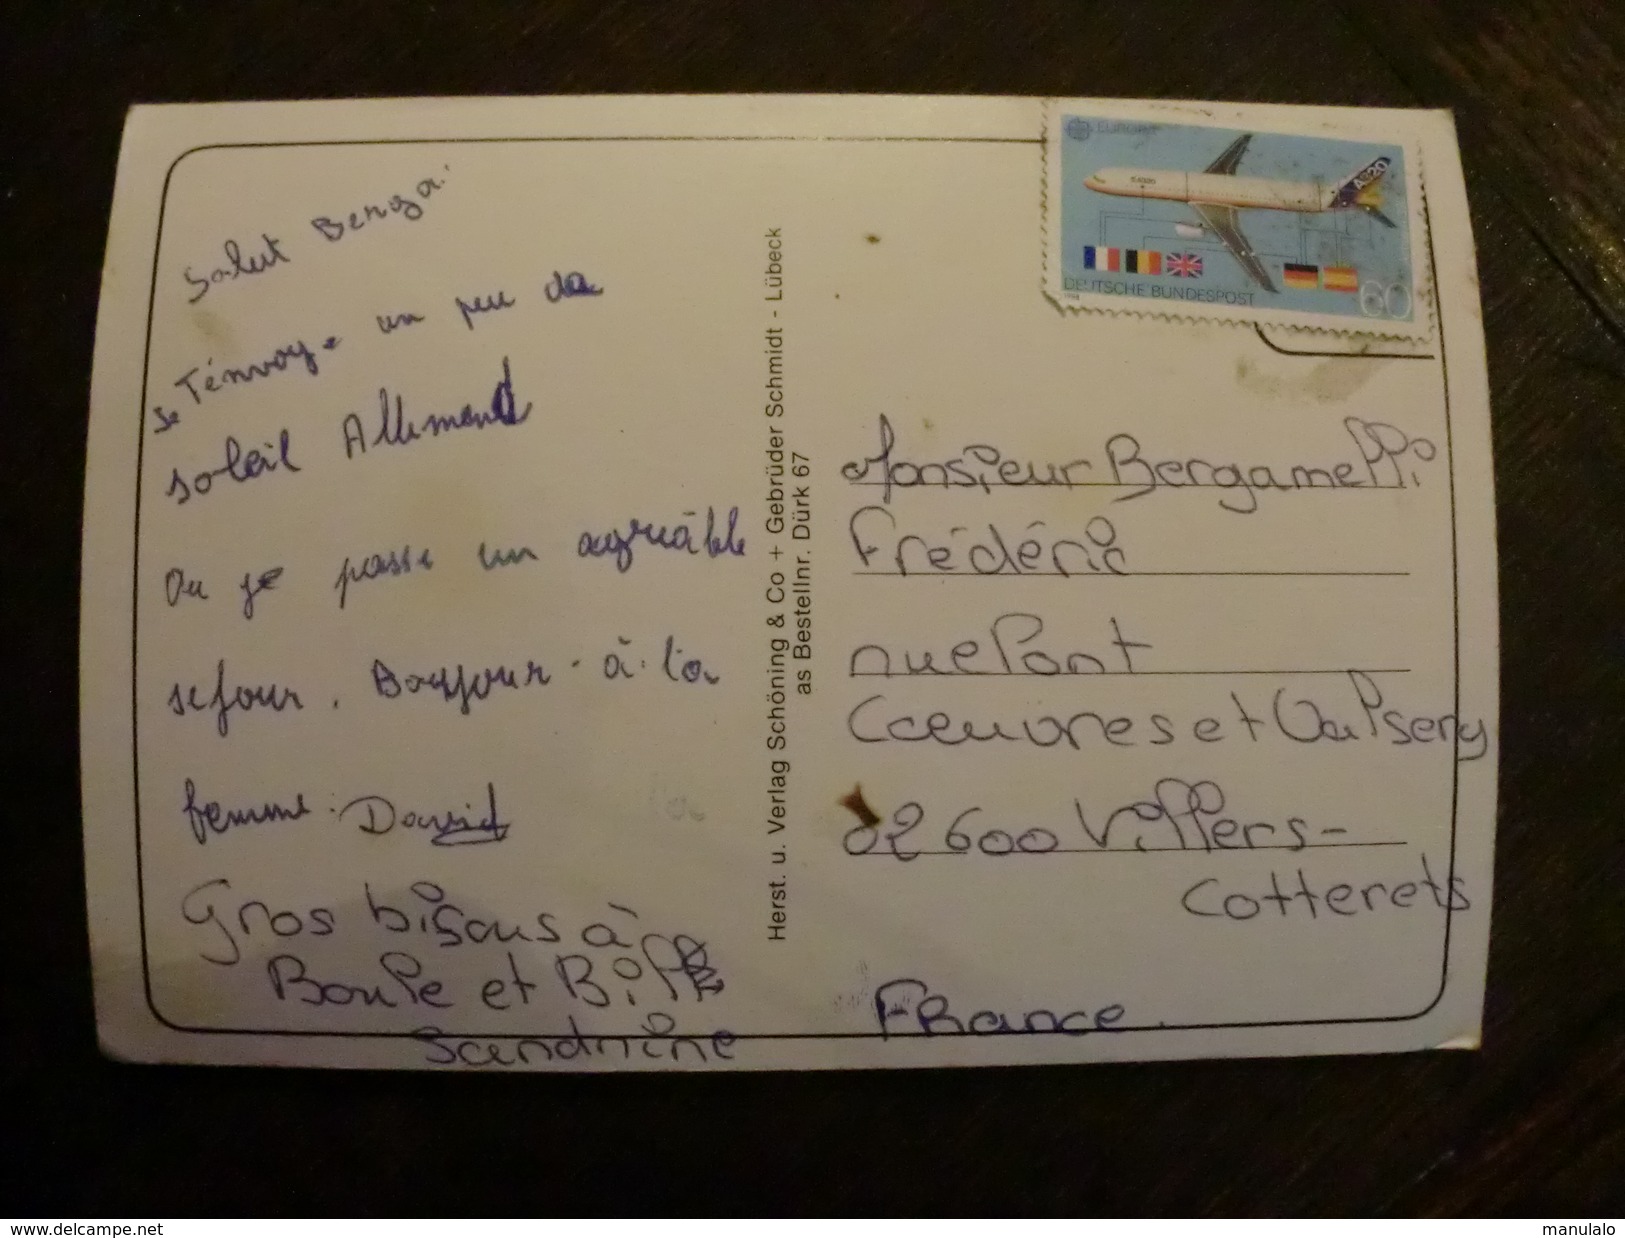 Salut Berga.
Je T'envoye un peu de
soleil Allemand
Ou je passe un agréàble
sejour. Bonjour à la
femme. David
Gros bisous à
Boule et Bill
Sandrine
Herst. u. Verlag Schöning & Co + Gebrüder Schmidt - Lübeck
as Bestellnr. Dürk 67
EUROPA
A320
A320
DEUTSCHE BUNDESPOST
60
1988
Monsieur Bergamelli
Frédéric
rue Pont
Coeuvres et Valsery
02600 Villers-
Cotterets
France.
www.delcampe.net
manulalo